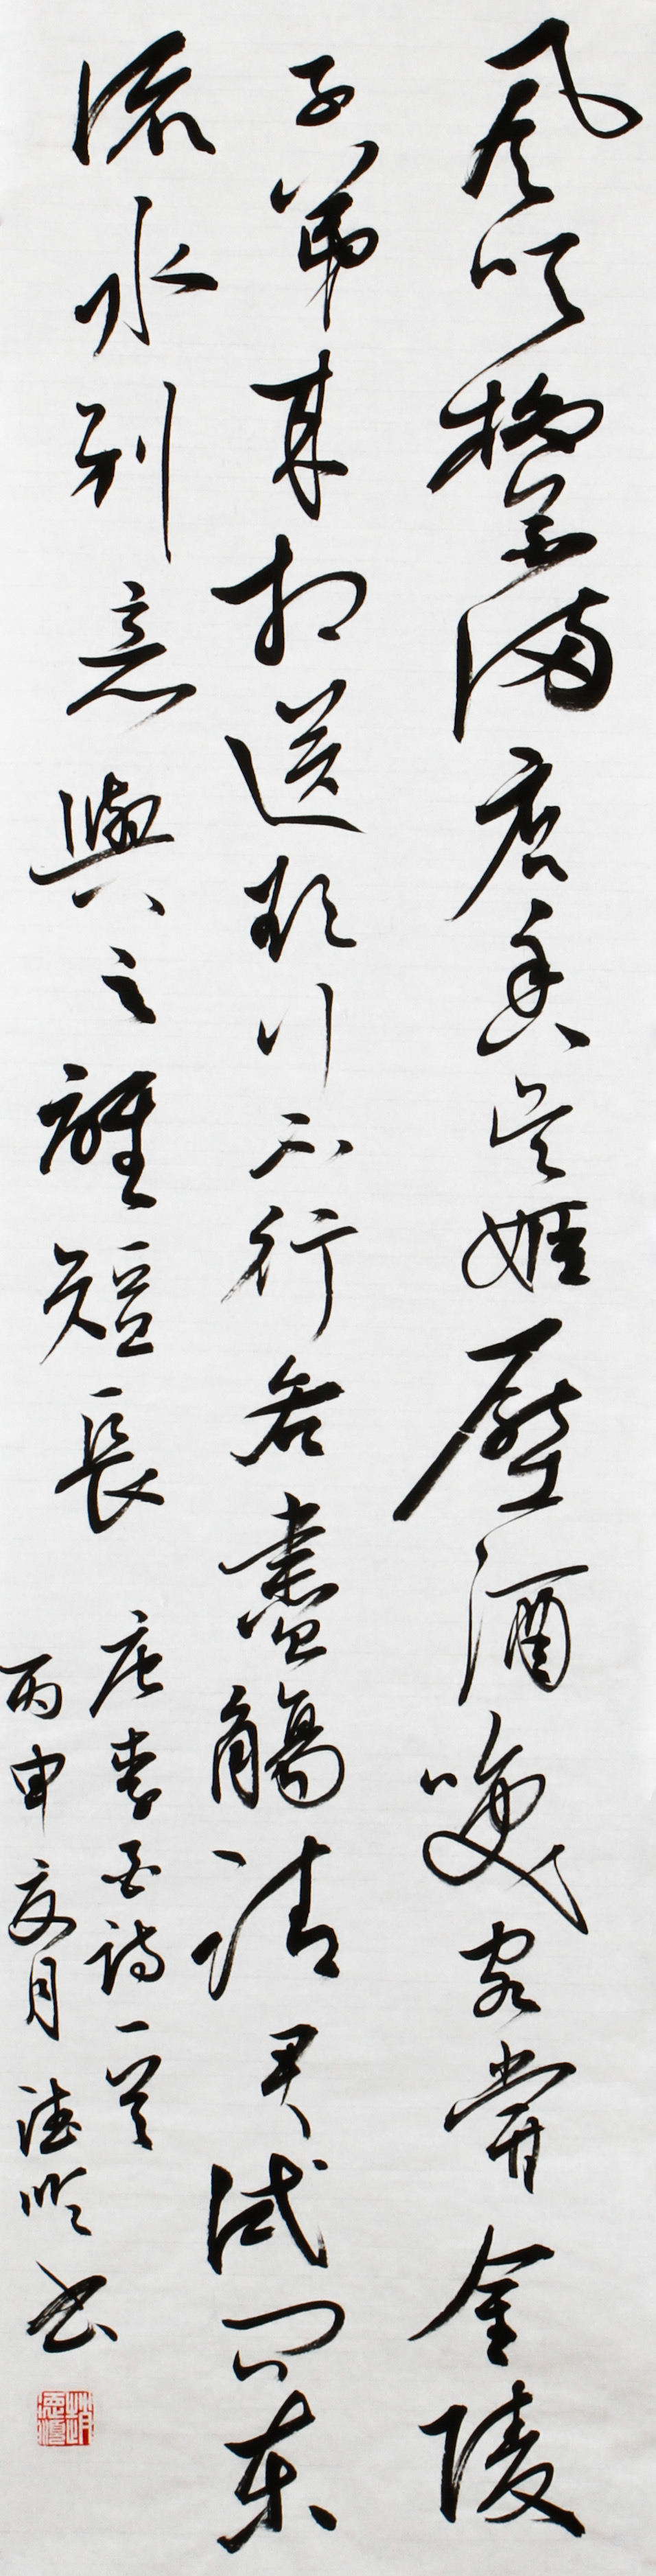 風吹柳花滿店香吳姬壓酒喚客嘗金陵
子弟來相送欲行不行各盡觴請君試問東
流水別意與之誰短長
唐李白詩一首
丙申夏月德順書